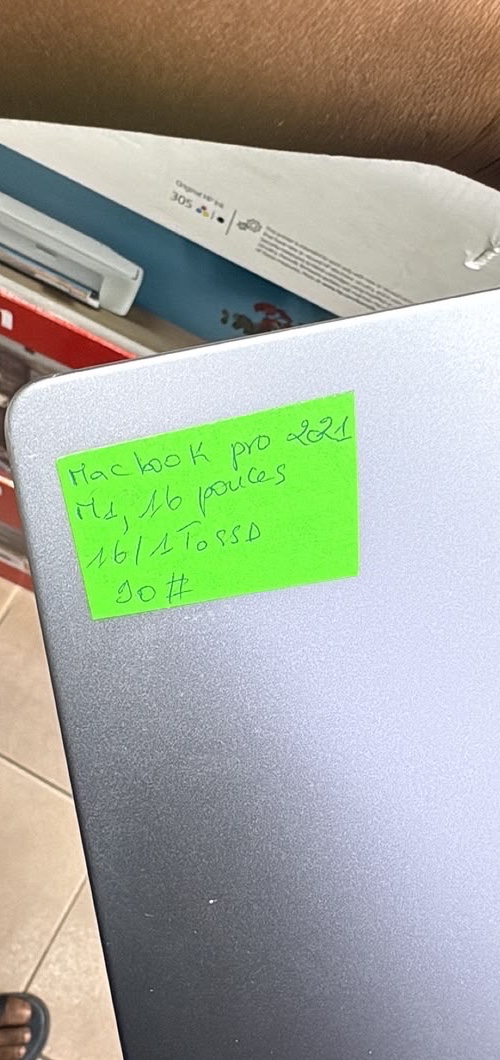 Original HP Ink
305
Macbook pro 2021
M1, 16 pouces
16/1To SSD
90#